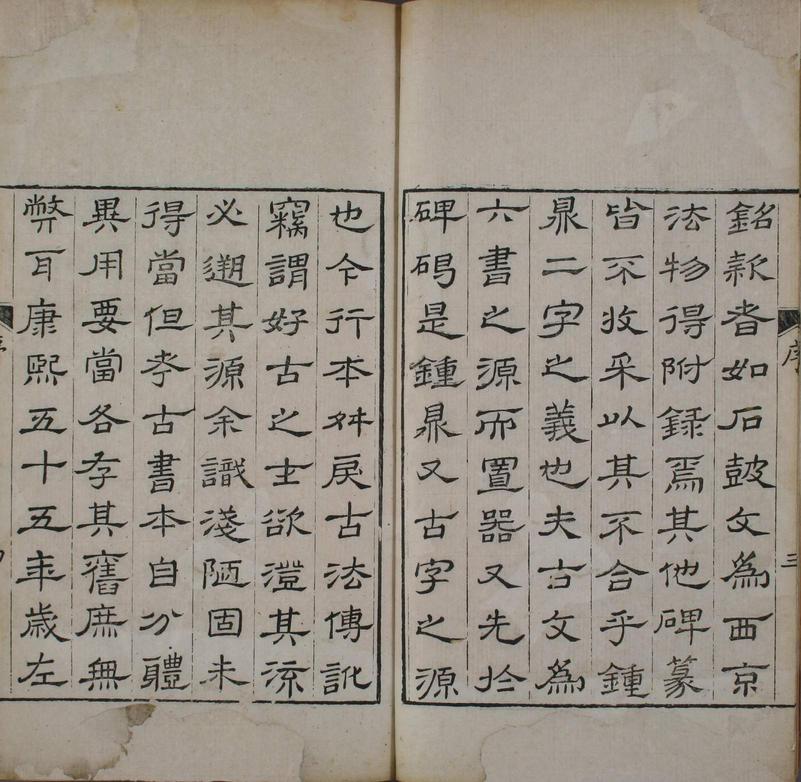 序 三
銘款者如石鼓文為西京
法物得附録焉其他碑篆
皆不收采以其不合乎鍾
鼎二字之義也夫古文為
六書之源而置器又先於
碑碣是鍾鼎又古字之源
也今行本舛戾古法傳訛
竊謂好古之士欲澄其流
必遡其源余識淺陋固未
得當但考古書本自分體
異用要當各存其舊庶無
弊耳康熙五十五年歲左